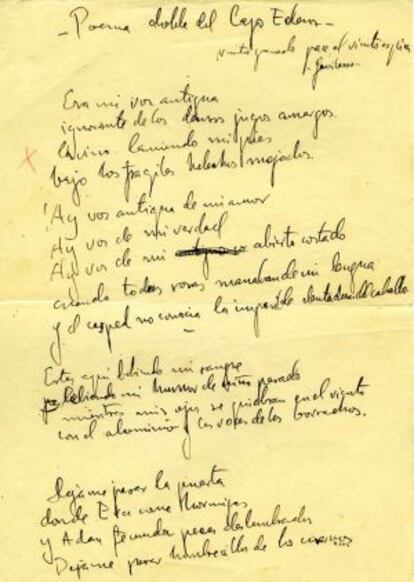 - Poema doble del Lago Edem -
nuestro ganado pace el viento espira
- Garcilaso -
Era mi voz antigua
ignorante de los densos jugos amargos.
la vino lamiendo mis pies
bajo los fragiles helechos mojados.
¡Ay voz antigua de mi amor
Ay voz de mi verdad
Ay voz de mi abierto costado
cuando todas rosas manaban de mi lengua
y el cesped no conocia la impasible dentadura del caballo.
Estas aqui bebiendo mi sangre
bebiendo mi humor de niño pasado
mientras mis ojos se quiebran en el viento
con el aluminio y las voces de los borrachos.
Dejame pasar la puerta
donde Eva come hormigas
y Adan fecunda peces deslumbrados
Dejame pasar hombrecillo de los cuernos